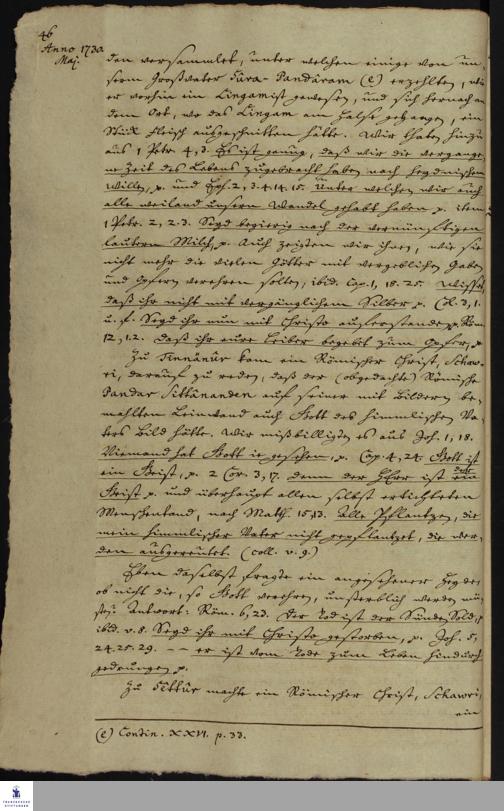 46
Anno 1730.
Maj.
den versammlet, unter welchen einige von un-
serm Großvater Tura-Pandáram (e) erzehlten, wie
er vorhin ein Lingamist gewesen, und sich hernach an
dem Ort, wo das Lingam am Halse gehangen, ein
Stück Fleisch ausgeschnitten hätte. Wir thaten hinzu
aus 1 Petr. 4, 3. Es ist genug, daß wir die vergange-
ne Zeit des Lebens zugebracht haben nach heydnischem
Willen, p. und Eph. 2, 3. 4. 14. 15. Unter welchen wir auch
alle weiland unsern Wandel gehabt haben p. item
1 Petr. 2, 2. 3. Seyd begierig nach der vernünftigen
lautern Milch, p. Auch zeigten wir ihnen, wie sie
nicht mehr die vielen Götter mit vergeblichen Gaben
und Opfern verehren solten, ibid. Cap. 1, 18-25. Wisset,
daß ihr nicht mit vergänglichem Silber p. Col. 3, 1.
u. f. Seyd ihr nun mit Christo auferstanden p. Röm.
12, 1. 2. Daß ihr eure Leiber begebet zum Opfer, p.
Zu Tirunánúr kam ein Römischer Christ, Schaw-
ri, darauf zu reden, daß der (obgedachte) Römische
Pandar Sittánanden auf seiner mit Bildern be-
mahlten Leinwand auch Gott des himmlischen Va-
ters Bild hätte. Wir mißbilligten es aus Joh. 1, 18.
Niemand hat Gott je gesehen, p. Cap. 4, 24. Gott ist
ein Geist, p. 2 Cor. 3, 17. denn der Herr ist der
Geist p. und überhaupt allen selbst ertichteten
Menschentand, nach Matth. 15, 13. Alle Pflantzen, die
mein himmlischer Vater nicht gepflantzet, die wer-
den ausgereutet. (coll. v. 9.)
Eben daselbst fragte ein angesehener Heyde:
ob nicht die, so Gott verehren, unsterblich werden mü-
sten? Antwort: Röm. 6, 23. Der Tod ist der Sünden Sold, p.
ibid. v. 8. Seyd ihr mit Christo gestorben, p. Joh. 5,
24. 25. 29. -- er ist vom Tode zum Leben hindurch
gedrungen p.
Zu Sittúr machte ein Römischer Christ, Schawri,
ein
(e) Contin. XXVI. p. 33.
FRANCKESCHE
STIFTUNGEN